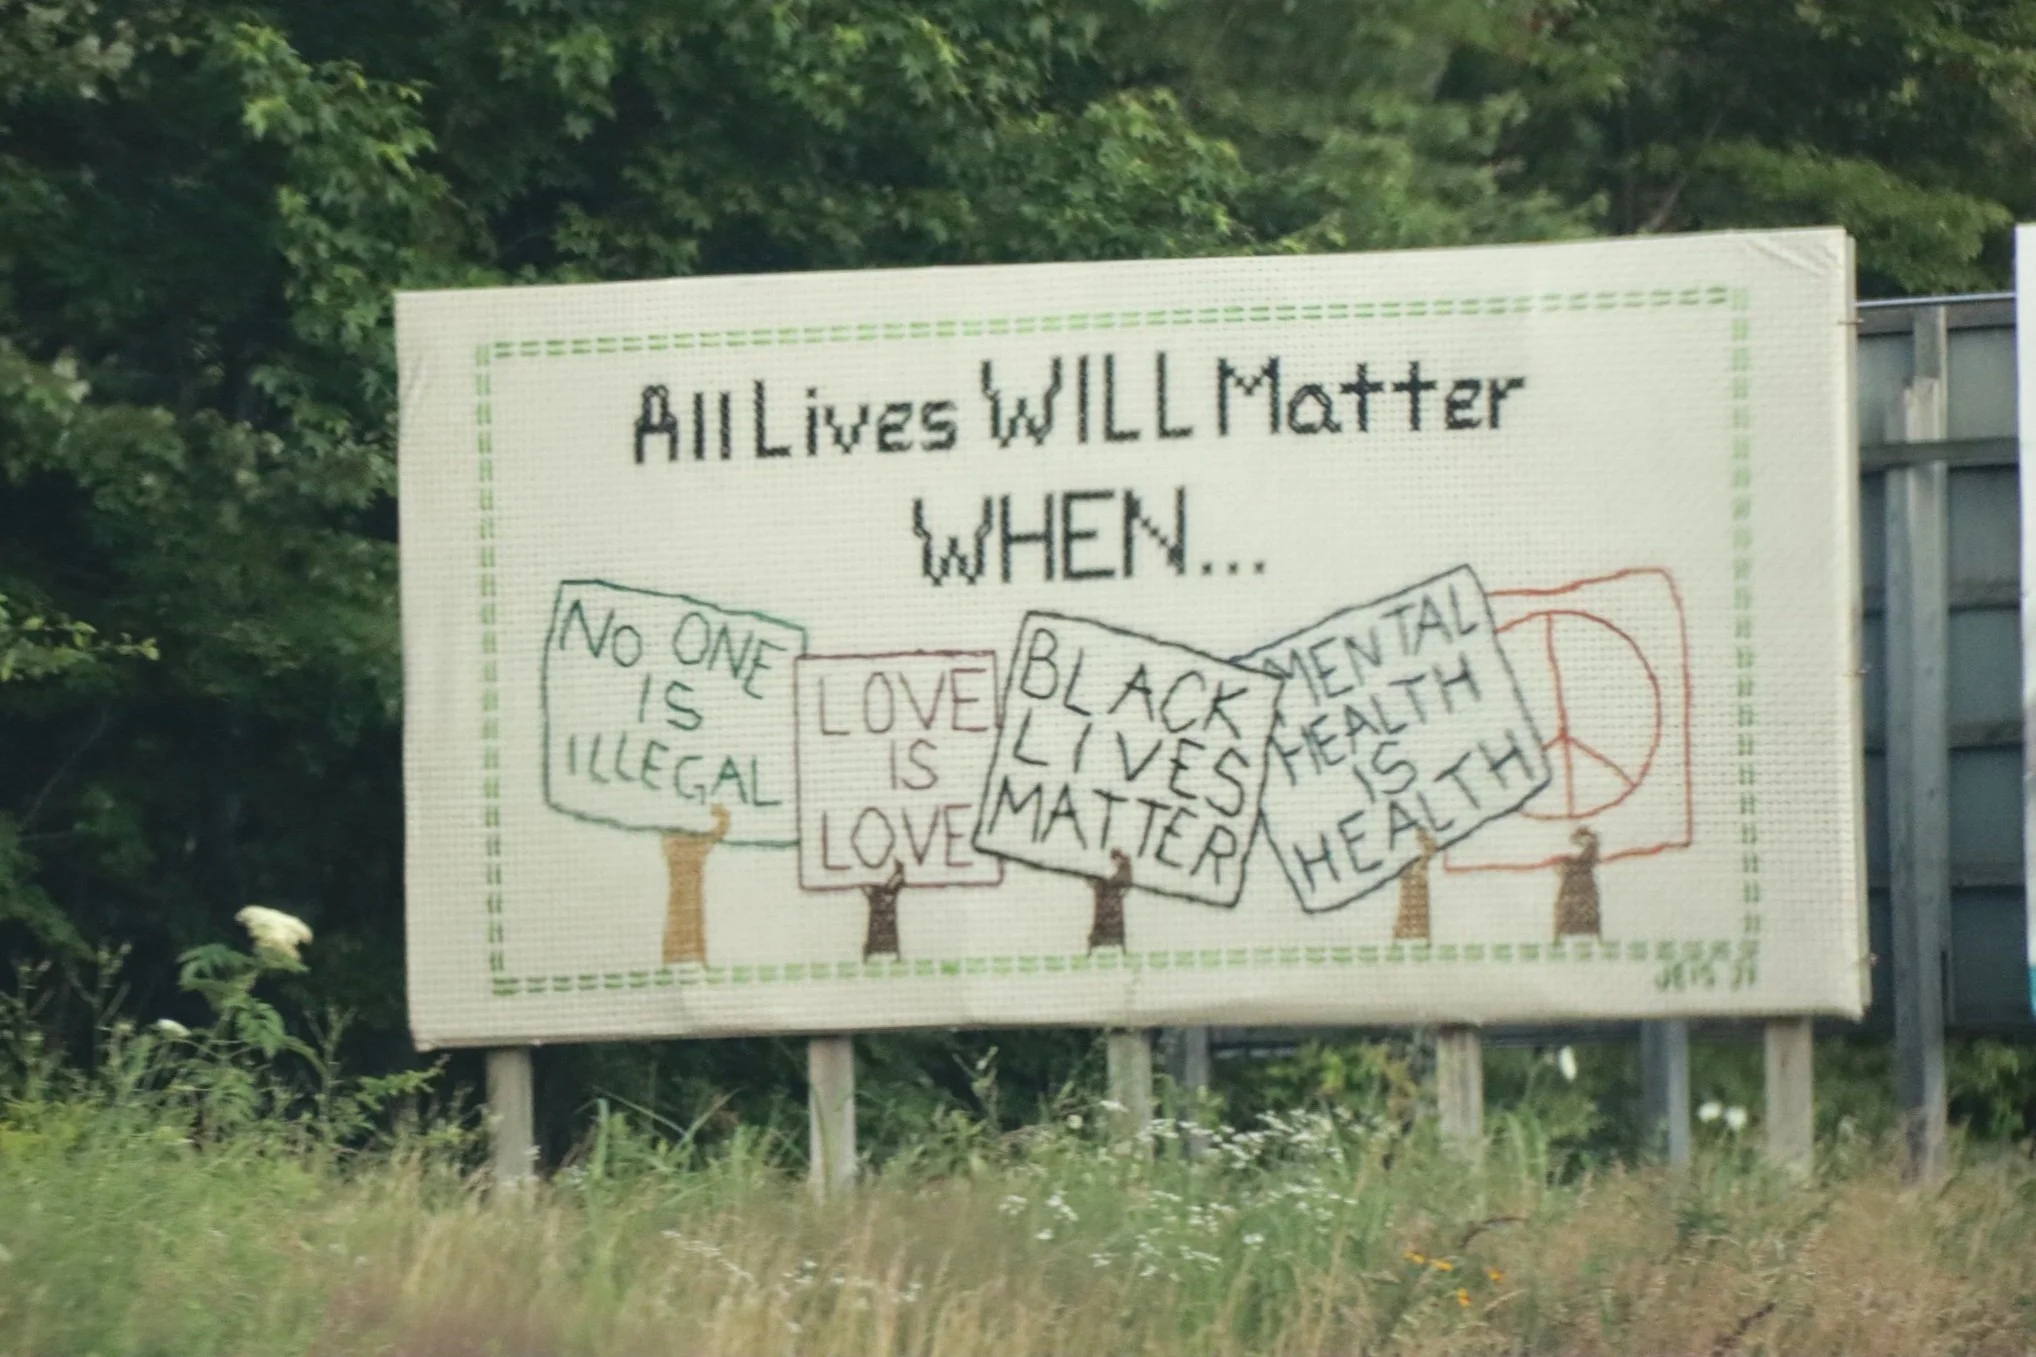 All Lives WILL Matter
WHEN...
No ONE
IS
ILLEGAL
LOVE
IS
LOVE
BLACK
LIVES
MATTER
MENTAL
HEALTH
IS
HEALTH